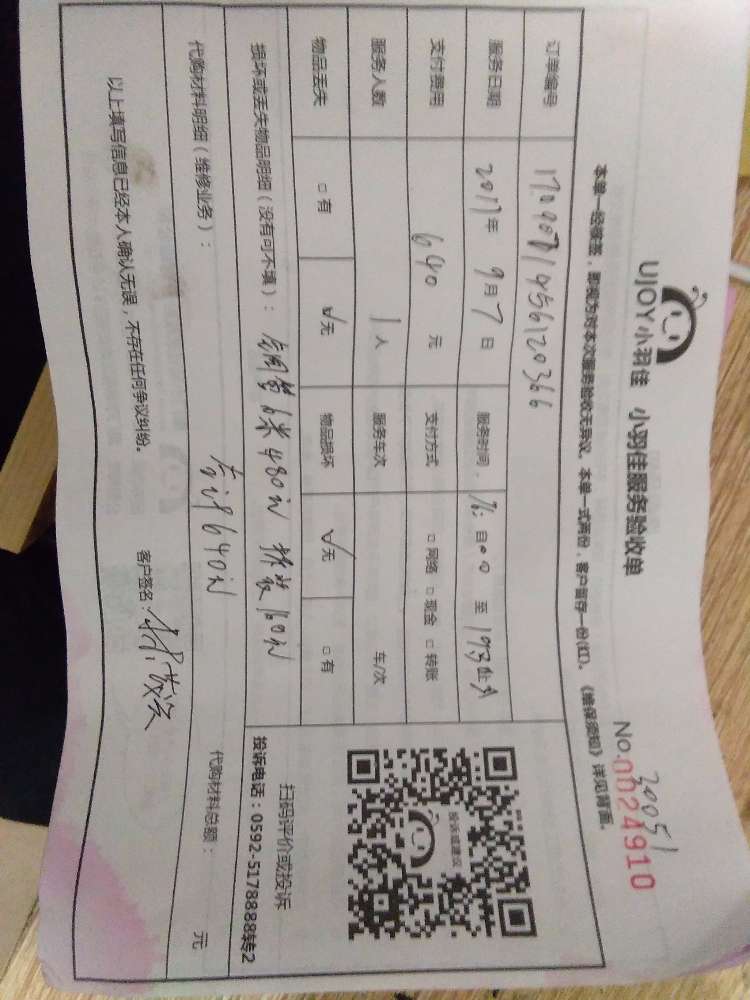 UJOY小羽佳 小羽佳服务验收单
No.0024910
30051
本单一经签签，即视为对本次服务验收无异议，本单一式两份，客户留存一份(红)。《维保须知》详见背面。
订单编号
服务日期 2017年 9月 7日 服务时间
至
支付费用 640 元 支付方式 □网络 □现金 □转账
服务人数 1人 服务车次 车/次
物品丢失 □有 ☑无 物品损坏 ☑无 □有
损坏或丢失物品明细（没有可不填）： 铜管6米480元 拆装160元
合计640元
代购材料明细（维修业务）： 代购材料总额： 元
以上填写信息已经本人确认无误，不存在任何争议纠纷。 客户签名：
投诉或建议
扫码评价或投诉
投诉电话：0592-5178888转2